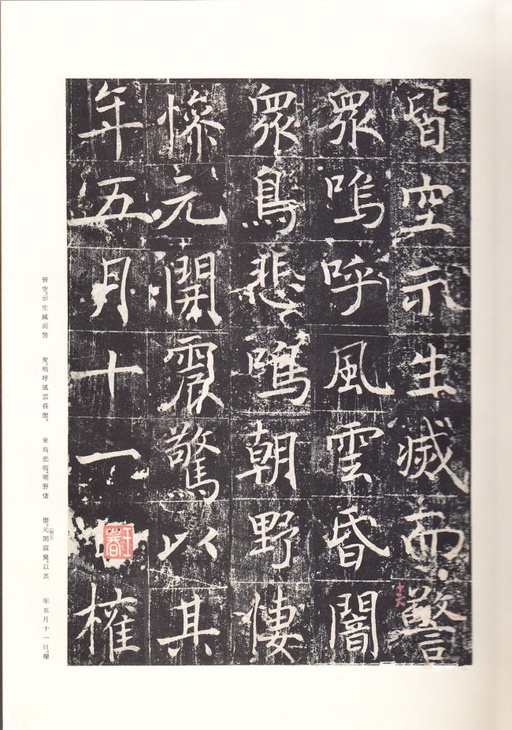 皆空示生滅而警
衆嗚呼風雲昏闇
衆鳥悲鳴朝野悽
慘元開震驚以其
年五月十一日權
皆空。示生滅而警　衆。嗚呼風雲昏闇。　衆鳥悲鳴。朝野悽　慘。元開震驚。以其　年五月十一日。權